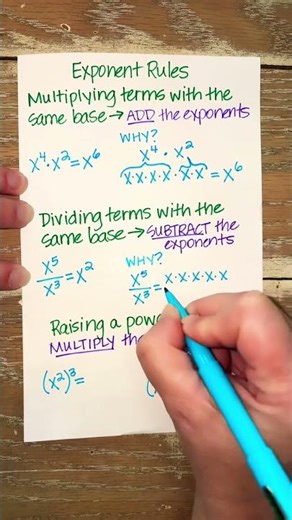 Exponent Rules
Multiplying terms with the
same base → ADD the exponents
WHY?
x⁴·x²=x⁶
x⁴ · x²
x·x·x·x · x·x = x⁶
Dividing terms with the
same base → SUBTRACT the
exponents
WHY?
x⁵/x³ = x²
x⁵/x³ = x·x·x·x·x
Raising a
MULTIPLY
(x²)³ =
(